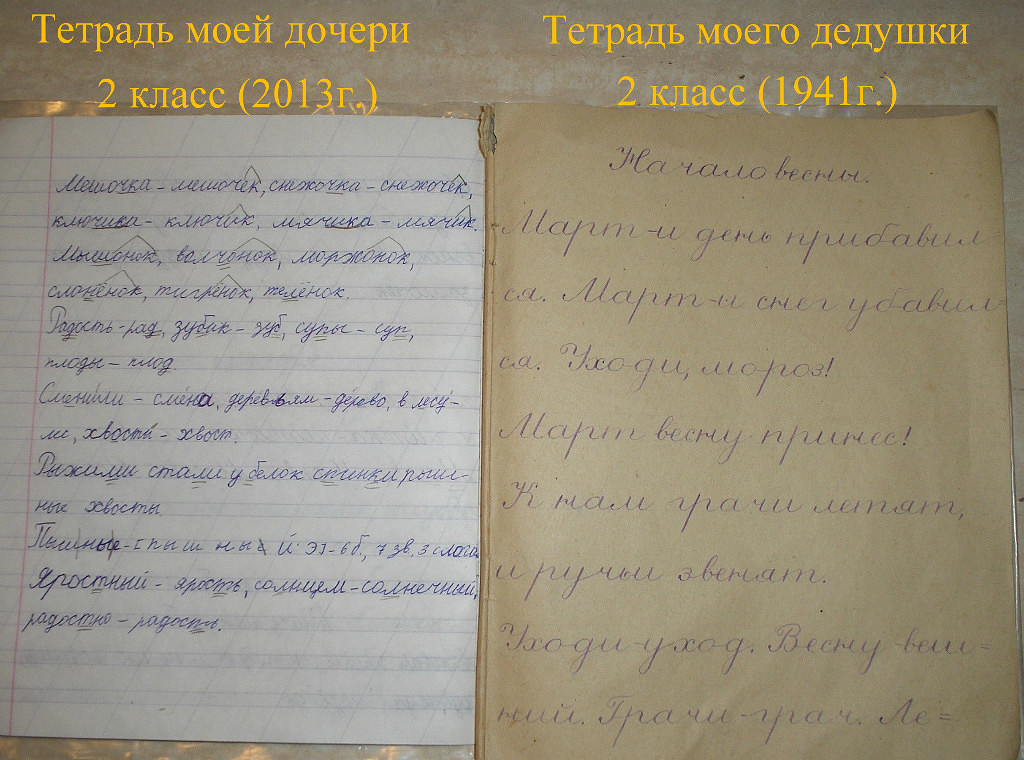 Тетрадь моей дочери
2 класс (2013г.)
Мешочка - мешочек, снежочка - снежочек,
ключика - ключик, мячика - мячик.
Мышонок, волчонок, моржонок,
слонёнок, тигрёнок, телёнок.
Радость - рад, зубик - зуб, супы - суп,
плоды - плод.
Сменили - смена, деревьям - дерево, в лесу -
ле, хвосты - хвост.
Рыжими стали у белок спинки пыш-
ные хвосты.
Пышные - [пышный'э] - 6 б., 7 зв, 3 слога
Яростный - ярость, солнцем - солнечный,
радостно - радость.
Тетрадь моего дедушки
2 класс (1941г.)
Начало весны.
Март - и день прибавил=
ся. Март - и снег убавил=
ся. Уходи, мороз!
Март весну принес!
К нам грачи летят,
и ручьи звенят.
Уходи - уход. Весну - веш=
ний. Грачи - грач. Ле=